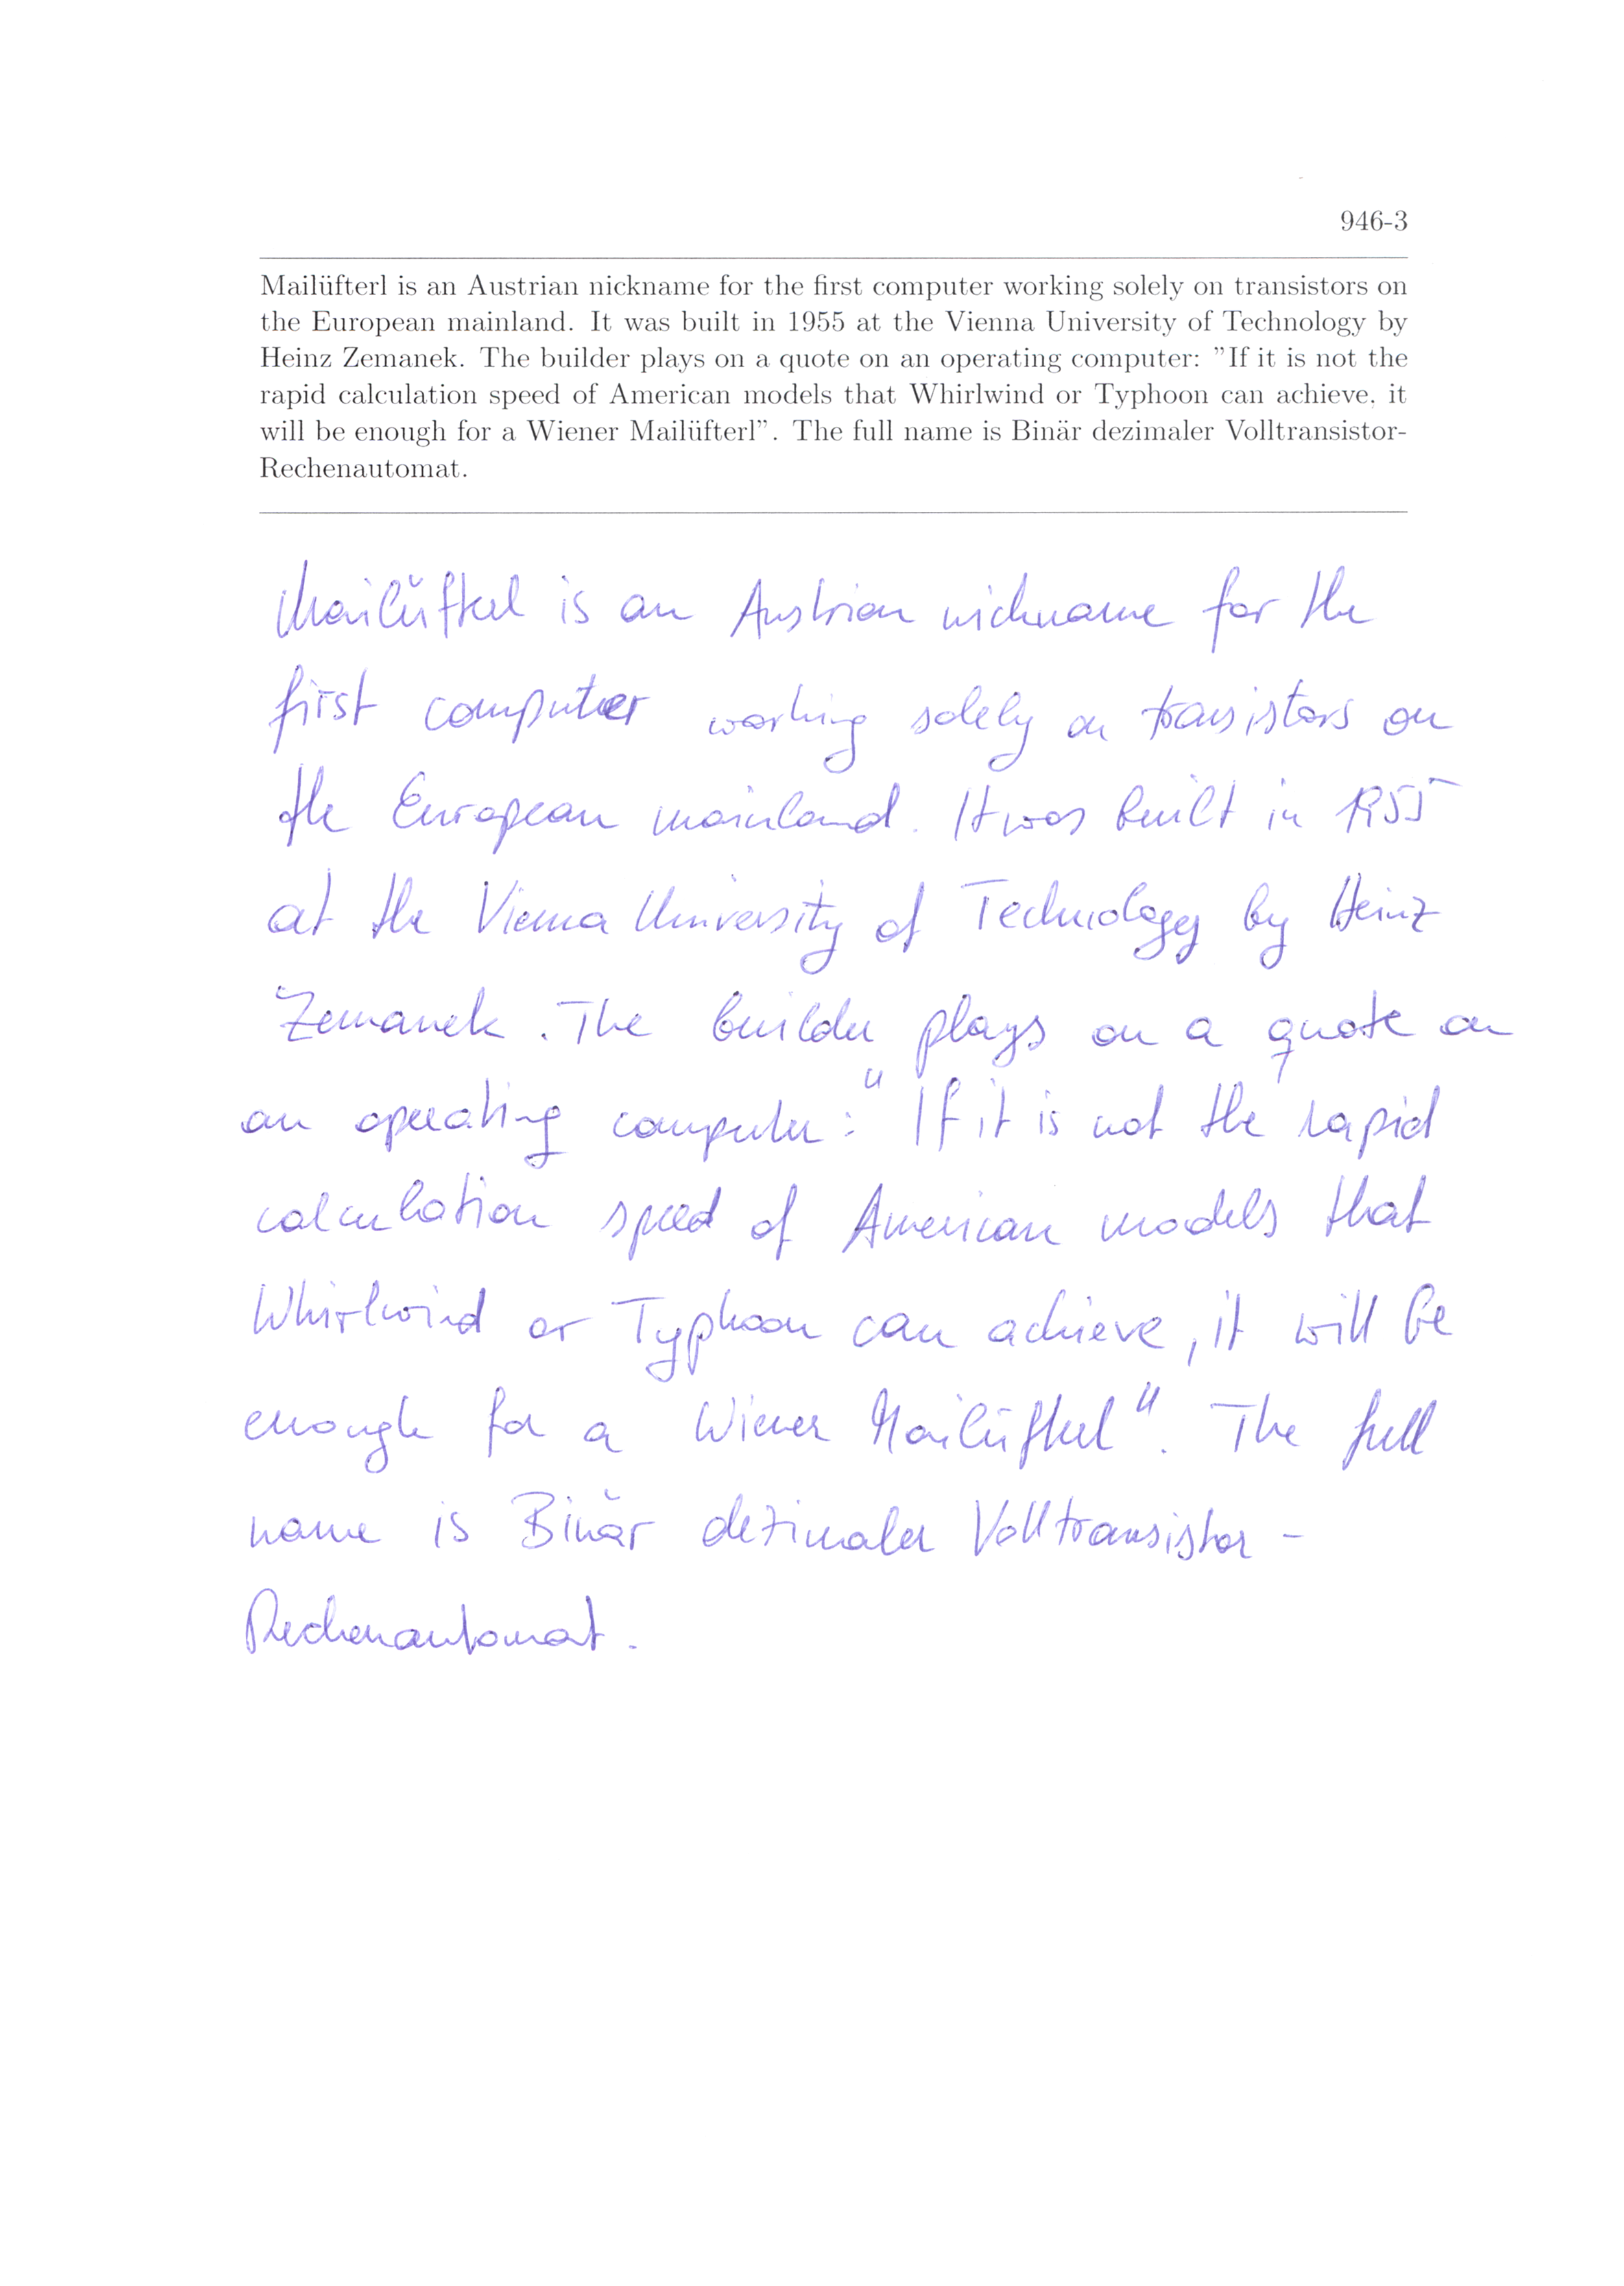 946-3
Mailüfterl is an Austrian nickname for the first computer working solely on transistors on
the European mainland. It was built in 1955 at the Vienna University of Technology by
Heinz Zemanek. The builder plays on a quote on an operating computer: "If it is not the
rapid calculation speed of American models that Whirlwind or Typhoon can achieve, it
will be enough for a Wiener Mailüfterl". The full name is Binär dezimaler Volltransistor-
Rechenautomat.
Mailüfterl is an Austrian nickname for the
first computer working solely on transistors on
the European mainland. It was built in 1955
at the Vienna University of Technology by Heinz
Zemanek. The builder plays on a quote on
an operating computer: "If it is not the rapid
calculation speed of American models that
Whirlwind or Typhoon can achieve, it will be
enough for a Wiener Mailüfterl". The full
name is Binär dezimaler Volltransistor-
Rechenautomat.